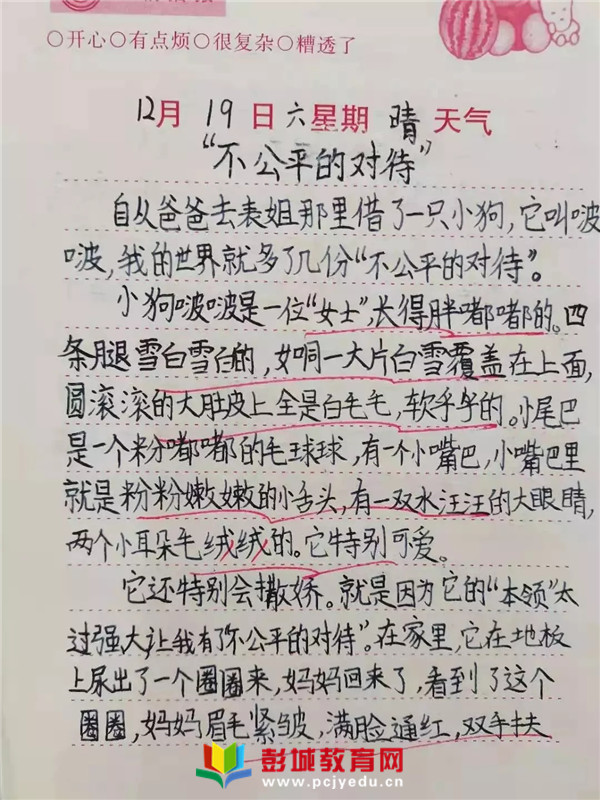 ○开心○有点烦○很复杂○糟透了
12月 19日 六星期 晴天气
“不公平的对待”
自从爸爸去表姐那里借了一只小狗,它叫啵
啵,我的世界就多了几份“不公平的对待”。
小狗啵啵是一位“女士”,长得胖嘟嘟的。四
条腿雪白雪白的,如同一大片白雪覆盖在上面,
圆滚滚的大肚皮上全是白毛毛,软乎乎的。小尾巴
是一个粉嘟嘟的毛球球,有一个小嘴巴,小嘴巴里
就是粉粉嫩嫩的小舌头,有一双水汪汪的大眼睛,
两个小耳朵毛绒绒的。它特别可爱。
它还特别会撒娇。就是因为它的“本领”太
过强大,让我有了“不公平的对待”。在家里,它在地板
上尿出了一个圈圈来,妈妈回来了,看到了这个
圈圈,妈妈眉毛紧皱,满脸通红,双手扶
彭城教育网
www.pcjyedu.cn